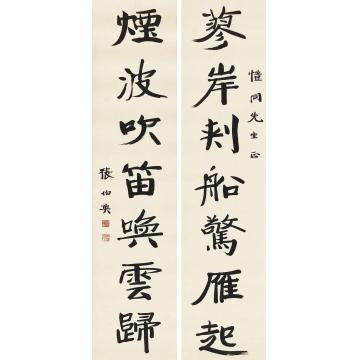 蓼岸刺船驚雁起
愷同先生正
煙波吹笛喚雲歸
張伯英